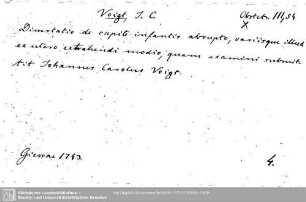 Voigt, J. C.
Obstetr. III, 54
X
Dissertatio de capite infantis abrupto, variisque illud
ex utero extrahendi modis, quam examini submit-
tit Johannes Carolus Voigt.
Giessae 1743.
4.
Sächsische Landesbibliothek -
Staats- und Universitätsbibliothek Dresden